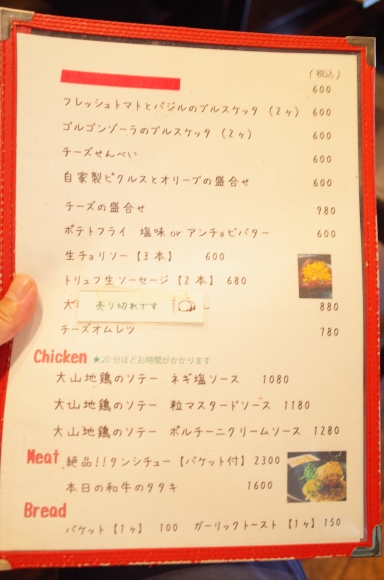 (税込)
600
フレッシュトマトとバジルのブルスケッタ (2ヶ) 600
ゴルゴンゾーラのブルスケッタ (2ヶ) 600
チーズせんべい 600
自家製ピクルスとオリーブの盛合せ 600
チーズの盛合せ 980
ポテトフライ 塩味 or アンチョビバター 600
生チョリソー【3本】 600
トリュフ生ソーセージ【2本】 680
売り切れです 880
チーズオムレツ 780
Chicken ★20分ほどお時間がかかります
大山地鶏のソテー ネギ塩ソース 1080
大山地鶏のソテー 粒マスタードソース 1180
大山地鶏のソテー ポルチーニクリームソース 1280
Meat 絶品!!タンシチュー【バケット付】2300
本日の和牛のタタキ 1600
Bread
バケット【1ヶ】 100 ガーリックトースト【1ヶ】150